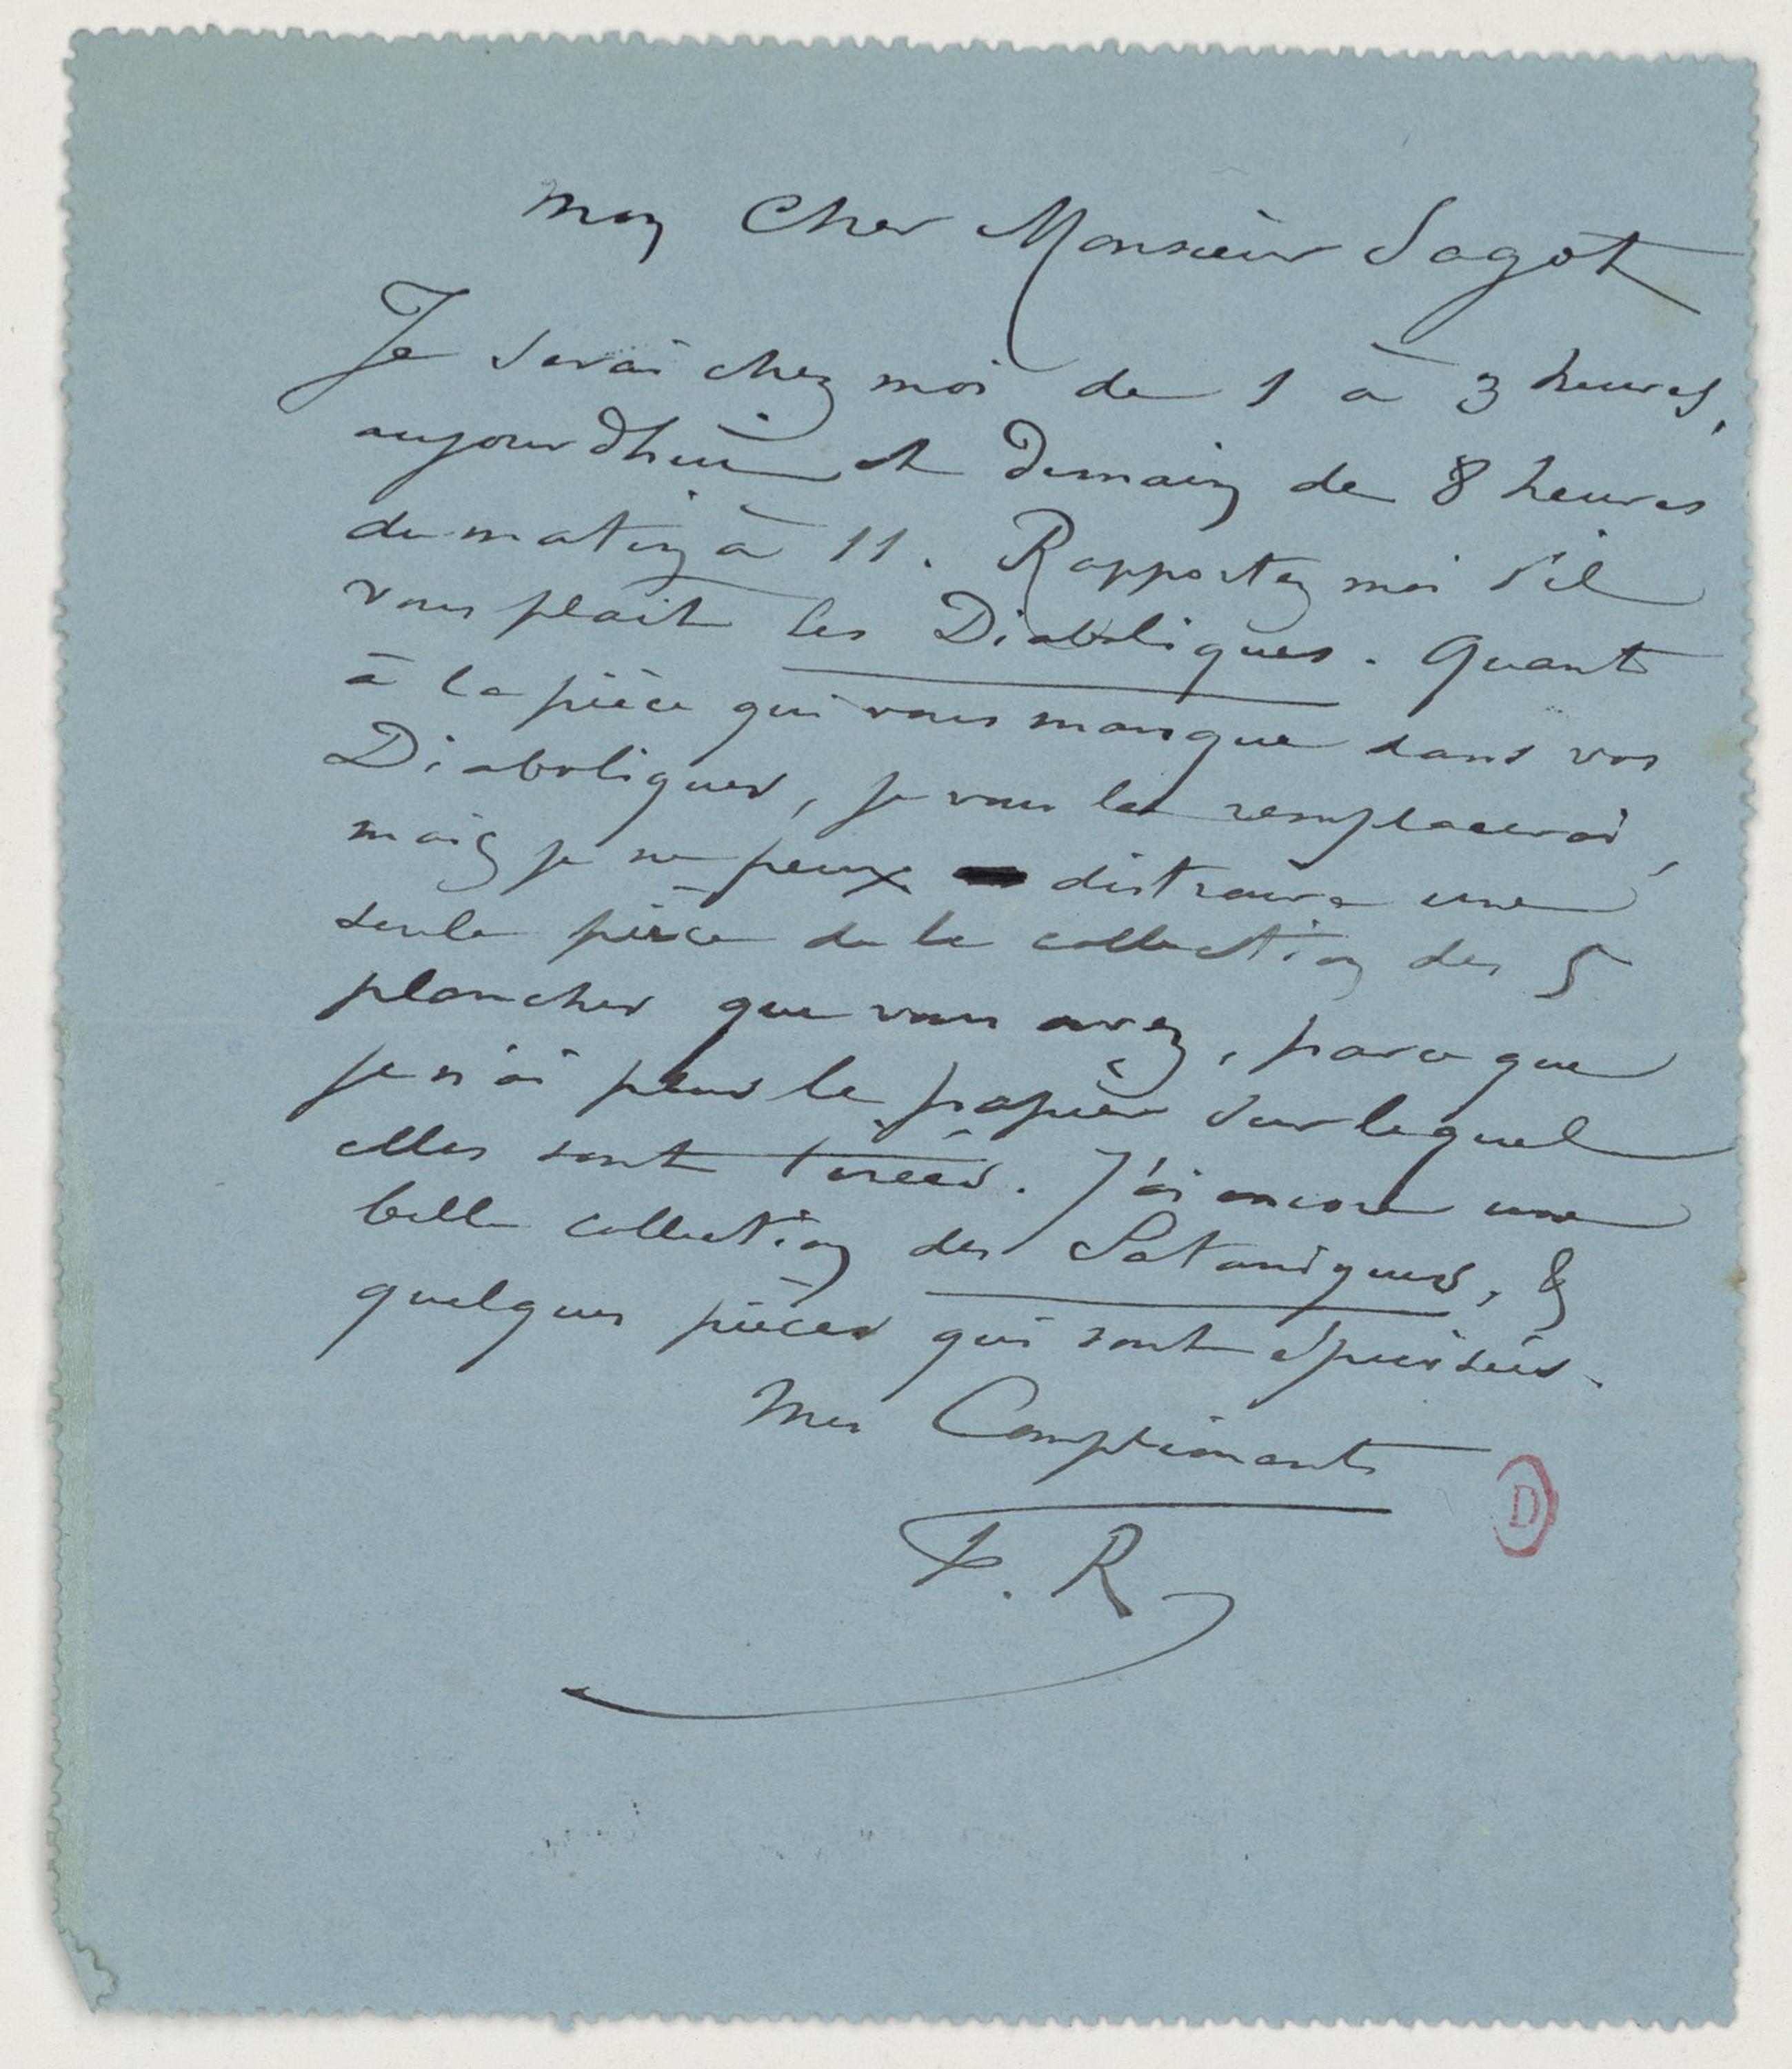 Mon Cher Monsieur Sagot
Je serai chez moi de 1 à 3 heures,
aujourd'hui et Demain de 8 heures
du matin à 11. Rapportez moi s'il
vous plait les Diaboliques. Quant
à la pièce qui vous manque dans vos
Diaboliques, je vous la remplacerai,
mais je ne peux distraire une
seule pièce de la collection des 5
planches que vous avez, parce que
je n'ai plus le papier sur lequel
elles sont tirées. J'ai encore une
belle collection des Sataniques, &
quelques pièces qui sont épuisées.
Mes Compliments
F. R
D